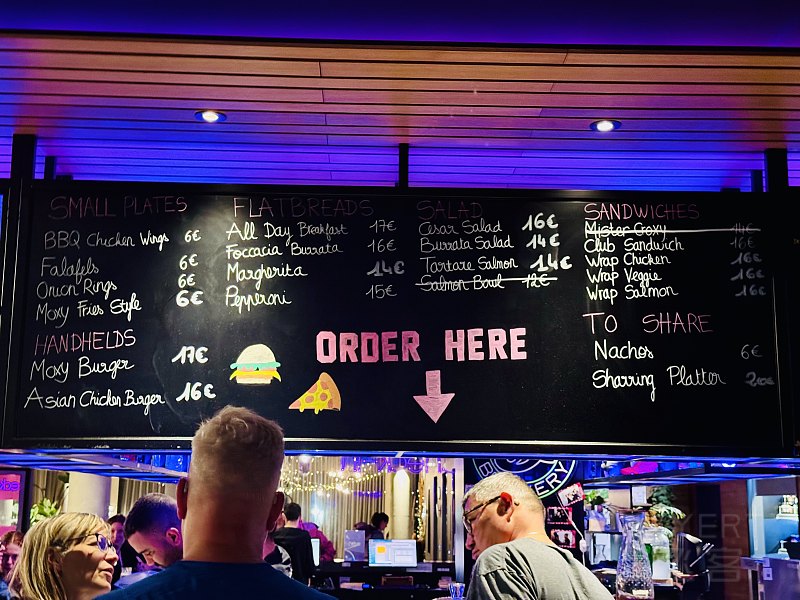 SMALL PLATES
BBQ Chicken Wings 6€
Falafels 6€
Onion Rings 6€
Moxy Fries Style 6€
HANDHELDS
Moxy Burger 17€
Asian Chicken Burger 16€
FLATBREADS
All Day Breakfast 17€
Foccacia Burrata 16€
Margherita 14€
Pepperoni 15€
SALAD
Cesar Salad 16€
Burrata Salad 14€
Tartare Salmon 14€
Salmon Bowl 12€
SANDWICHES
Mister Croxy 14€
Club Sandwich 16€
Wrap Chicken 16€
Wrap Veggie 16€
Wrap Salmon 16€
TO SHARE
Nachos 6€
Sharring Platter
ORDER HERE